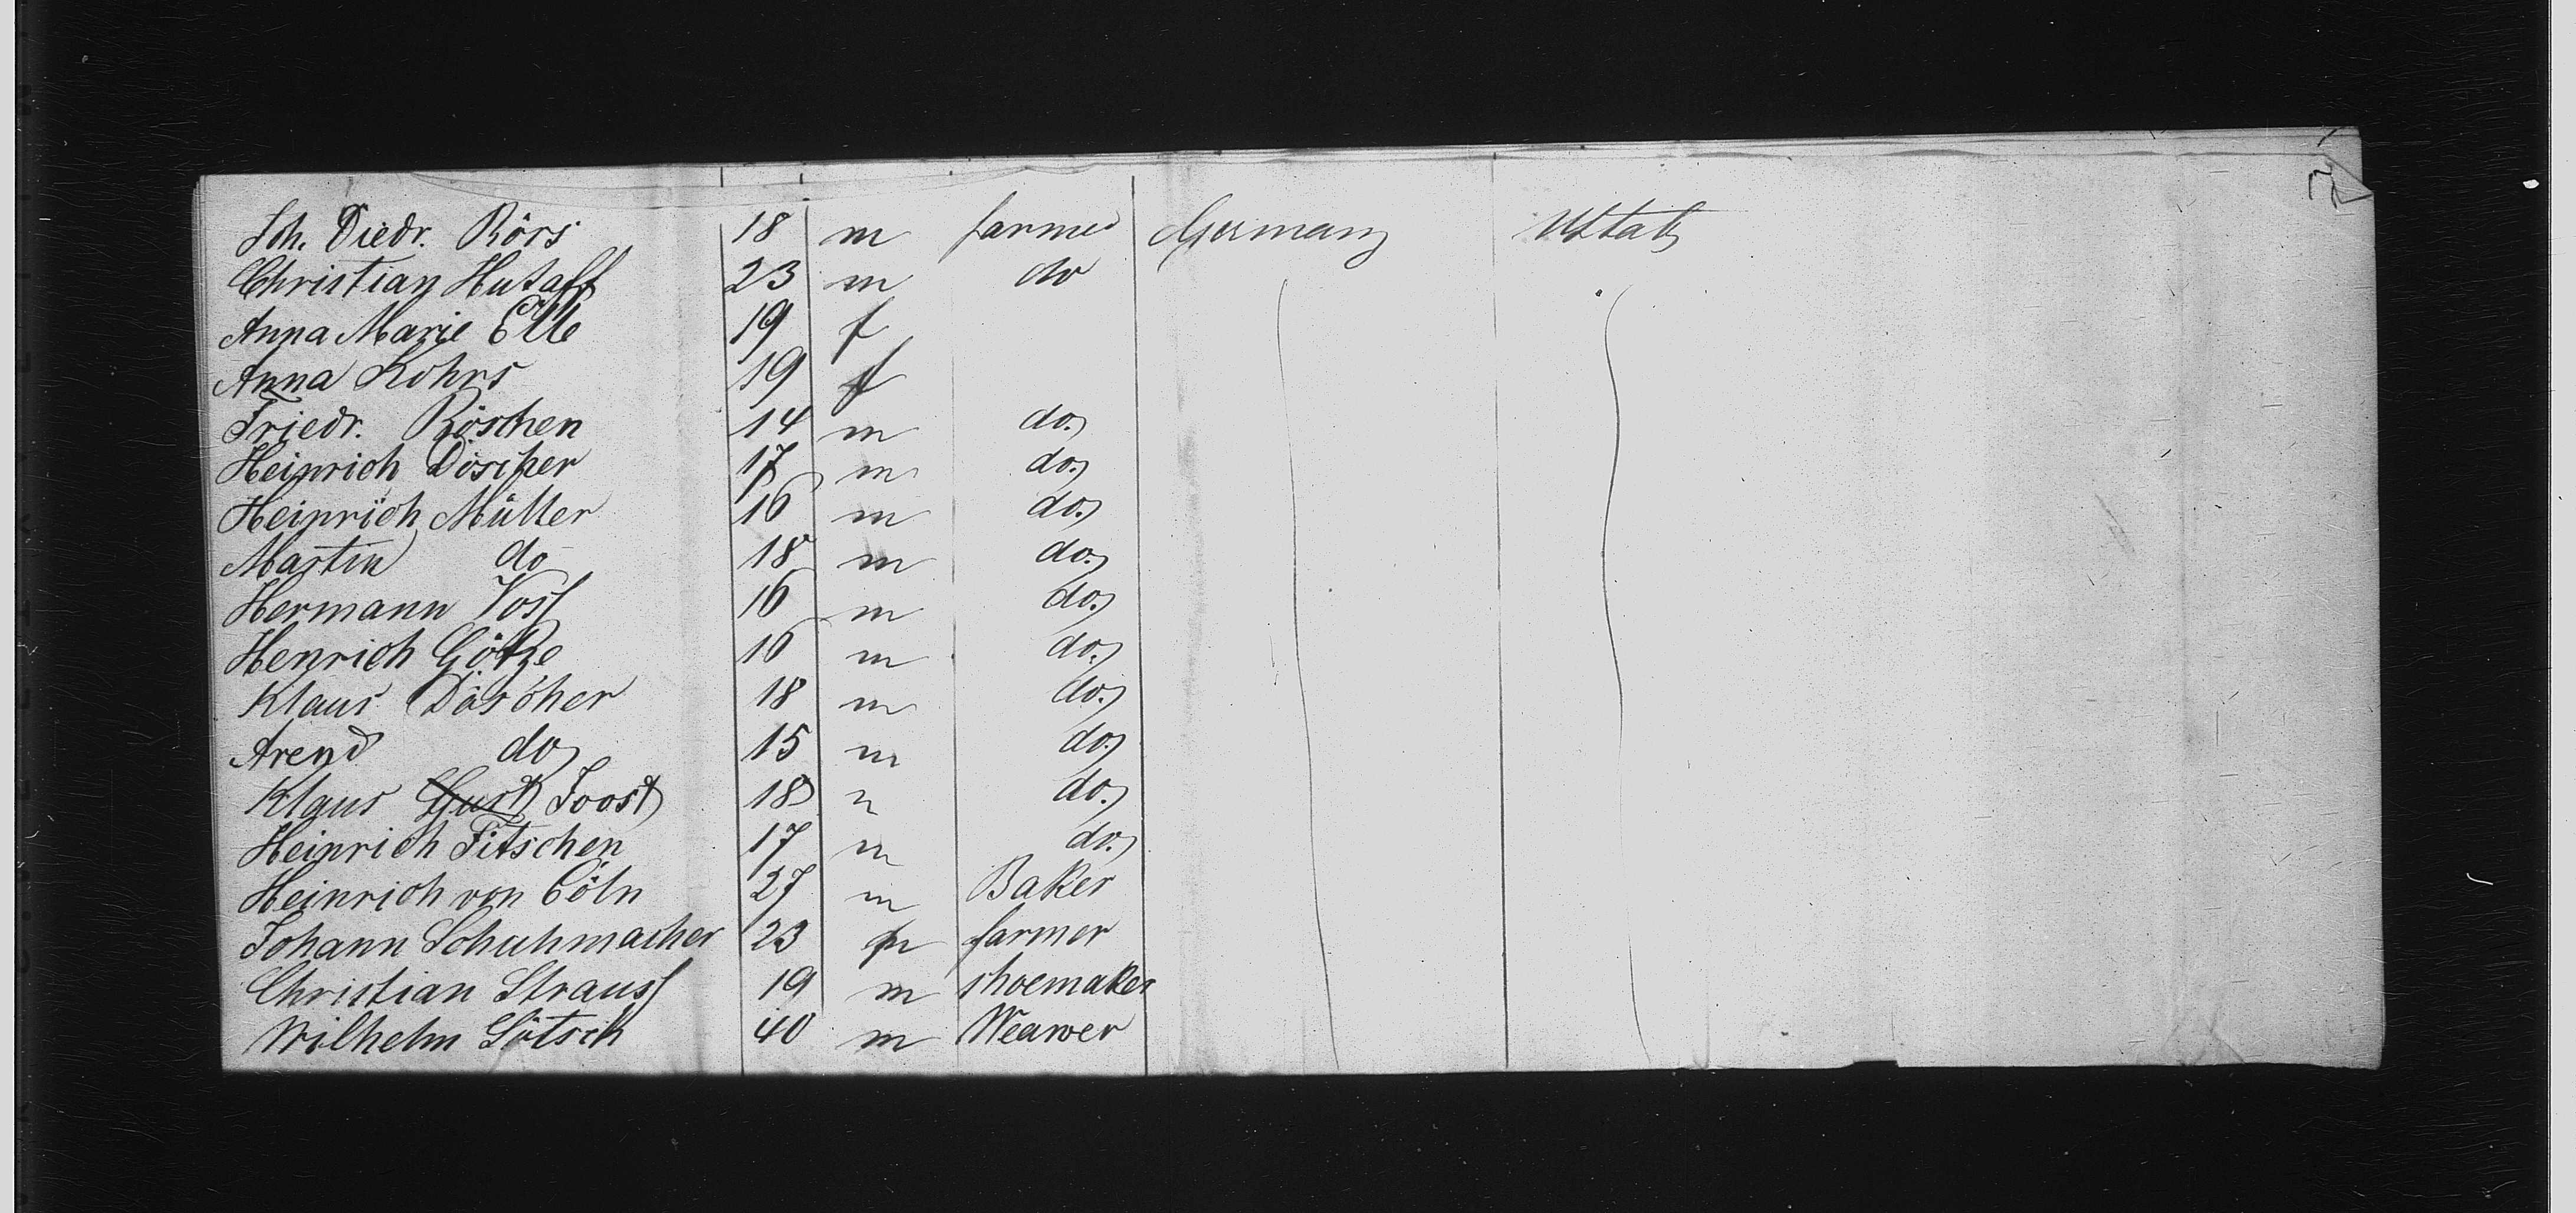 Joh. Diedr. Rörs 18 m farmer Germany UStats
Christian Hutaff 23 m do
Anna Marie Elle 19 f
Anna Kohrs 19 f
Friedr. Röschen 14 m do.
Heinrich Döscher 17 m do.
Heinrich Müller 16 m do.
Martin do 18 m do.
Hermann Voss 16 m do.
Henrich Götze 16 m do.
Klaus Döscher 18 m do.
Arend do 15 m do.
Klaus Joost 18 m do.
Heinrich Fitschen 17 m do.
Heinrich von Cöln 27 m Baker
Johann Schuhmacher 23 m farmer
Christian Strauss 19 m shoemaker
Wilhelm Götsch 40 m Weawer